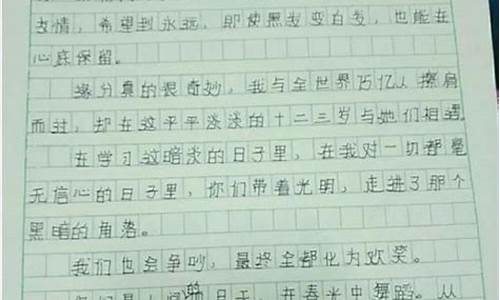 友情，希望到永远，即使黑发变白发，也能在
心底保留。
缘分真的很奇妙，我与全世界75亿人擦肩
而过，却在这平平淡淡的十二三岁与她们相遇
在学习这暗淡的日子里，在我对一切都毫
无信心的日子里，你们带着光明，走进了那个
黑暗的角落。
我们也会争吵，最终全都化为欢笑。
的日子，在春光中舞蹈。从